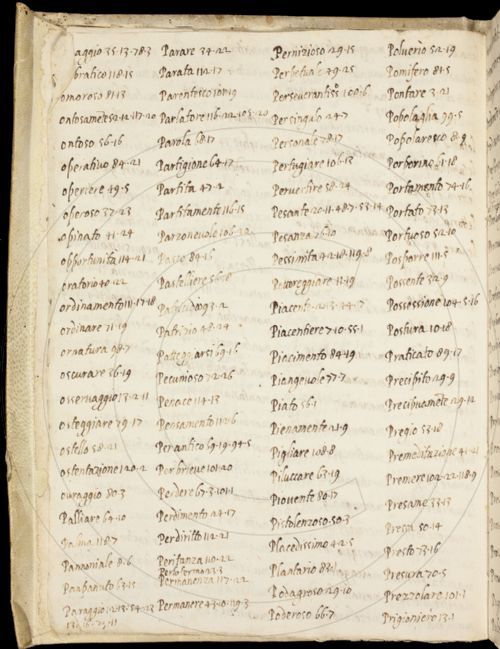 aggio 35·13·78·3
bratico 118·15
omoroso 81·13
ontoso 56·16
operativo 84·21
operiere 49·5
operoso 37·23
opinato 41·24
opportunita 114·21
oratorio 40·22
ordinamento 111·17·18
ordinare 71·19
ornatura 98·7
oscurare 36·19
osservaggio 13·2·11
osteggiare 79·17
ostello 58·21
ostentazione 120·2
ovraggio 80·3
Palliare 64·10
Palma 118·7
Panbanuto 63·15
Parare 34·22
Parata 112·17
Parentesco 101·9
Parlatore
Parola 68·17
Partigione 64·17
Partita 47·2
Partitamente 116·15
Parzonevole
Passo 84·16
Pastelliere 56·8
Patrizio 48·24
Patteggiarsi 69·16
Pecunioso 72·26
Penace 114·13
Pensamento 111·6
Perantico 69·19·94·5
Perbrieve 101·20
Perdere 67·3·101·1
Perdimento 24·17
Perdiritto 112·21
Peritanza 110·22
Perlofermo 23·3
Permanenza 117·22
Permanere
Pernizioso 29·15
Perpetuale 49·25
Persingulo 24·7
Personale 78·17
Pertugiare 106·13
Pervertire 58·24
Pesante 20·11·48·7·53·14
Pesanza 76·10
Pessimita
Piacente
Piacentiere 7·10·55·1
Piacimento 84·19
Piangevole 77·7
Piato 56·1
Pienamente 21·9
Pigliare 108·8
Piluccare 63·19
Piovente 80·17
Pistolenzoso 50·3
Placedissimo 42·5
Plantario
Podagroso 29·10
Poderoso 66·7
Polverio 52·19
Pomifero 81·5
Pontare 3·21
Popolaglia 99·5
Popolaresco
Portamento 74·16
Portato 73·13
Portuoso 52·10
Posporre 111·5
Possente 32·9
Possessione 104·5·16
Postura 10·18
Praticato 89·17
Precipito 29·9
Precipuamẽte 29·12
Pregio 53·18
Premeditazione 41·21
Premere 102·22·118·9
Presame 33·13
Presa 50·14
Presto 73·16
Presura 70·5
Prezzolare 101·1
Prigioniero 13·1